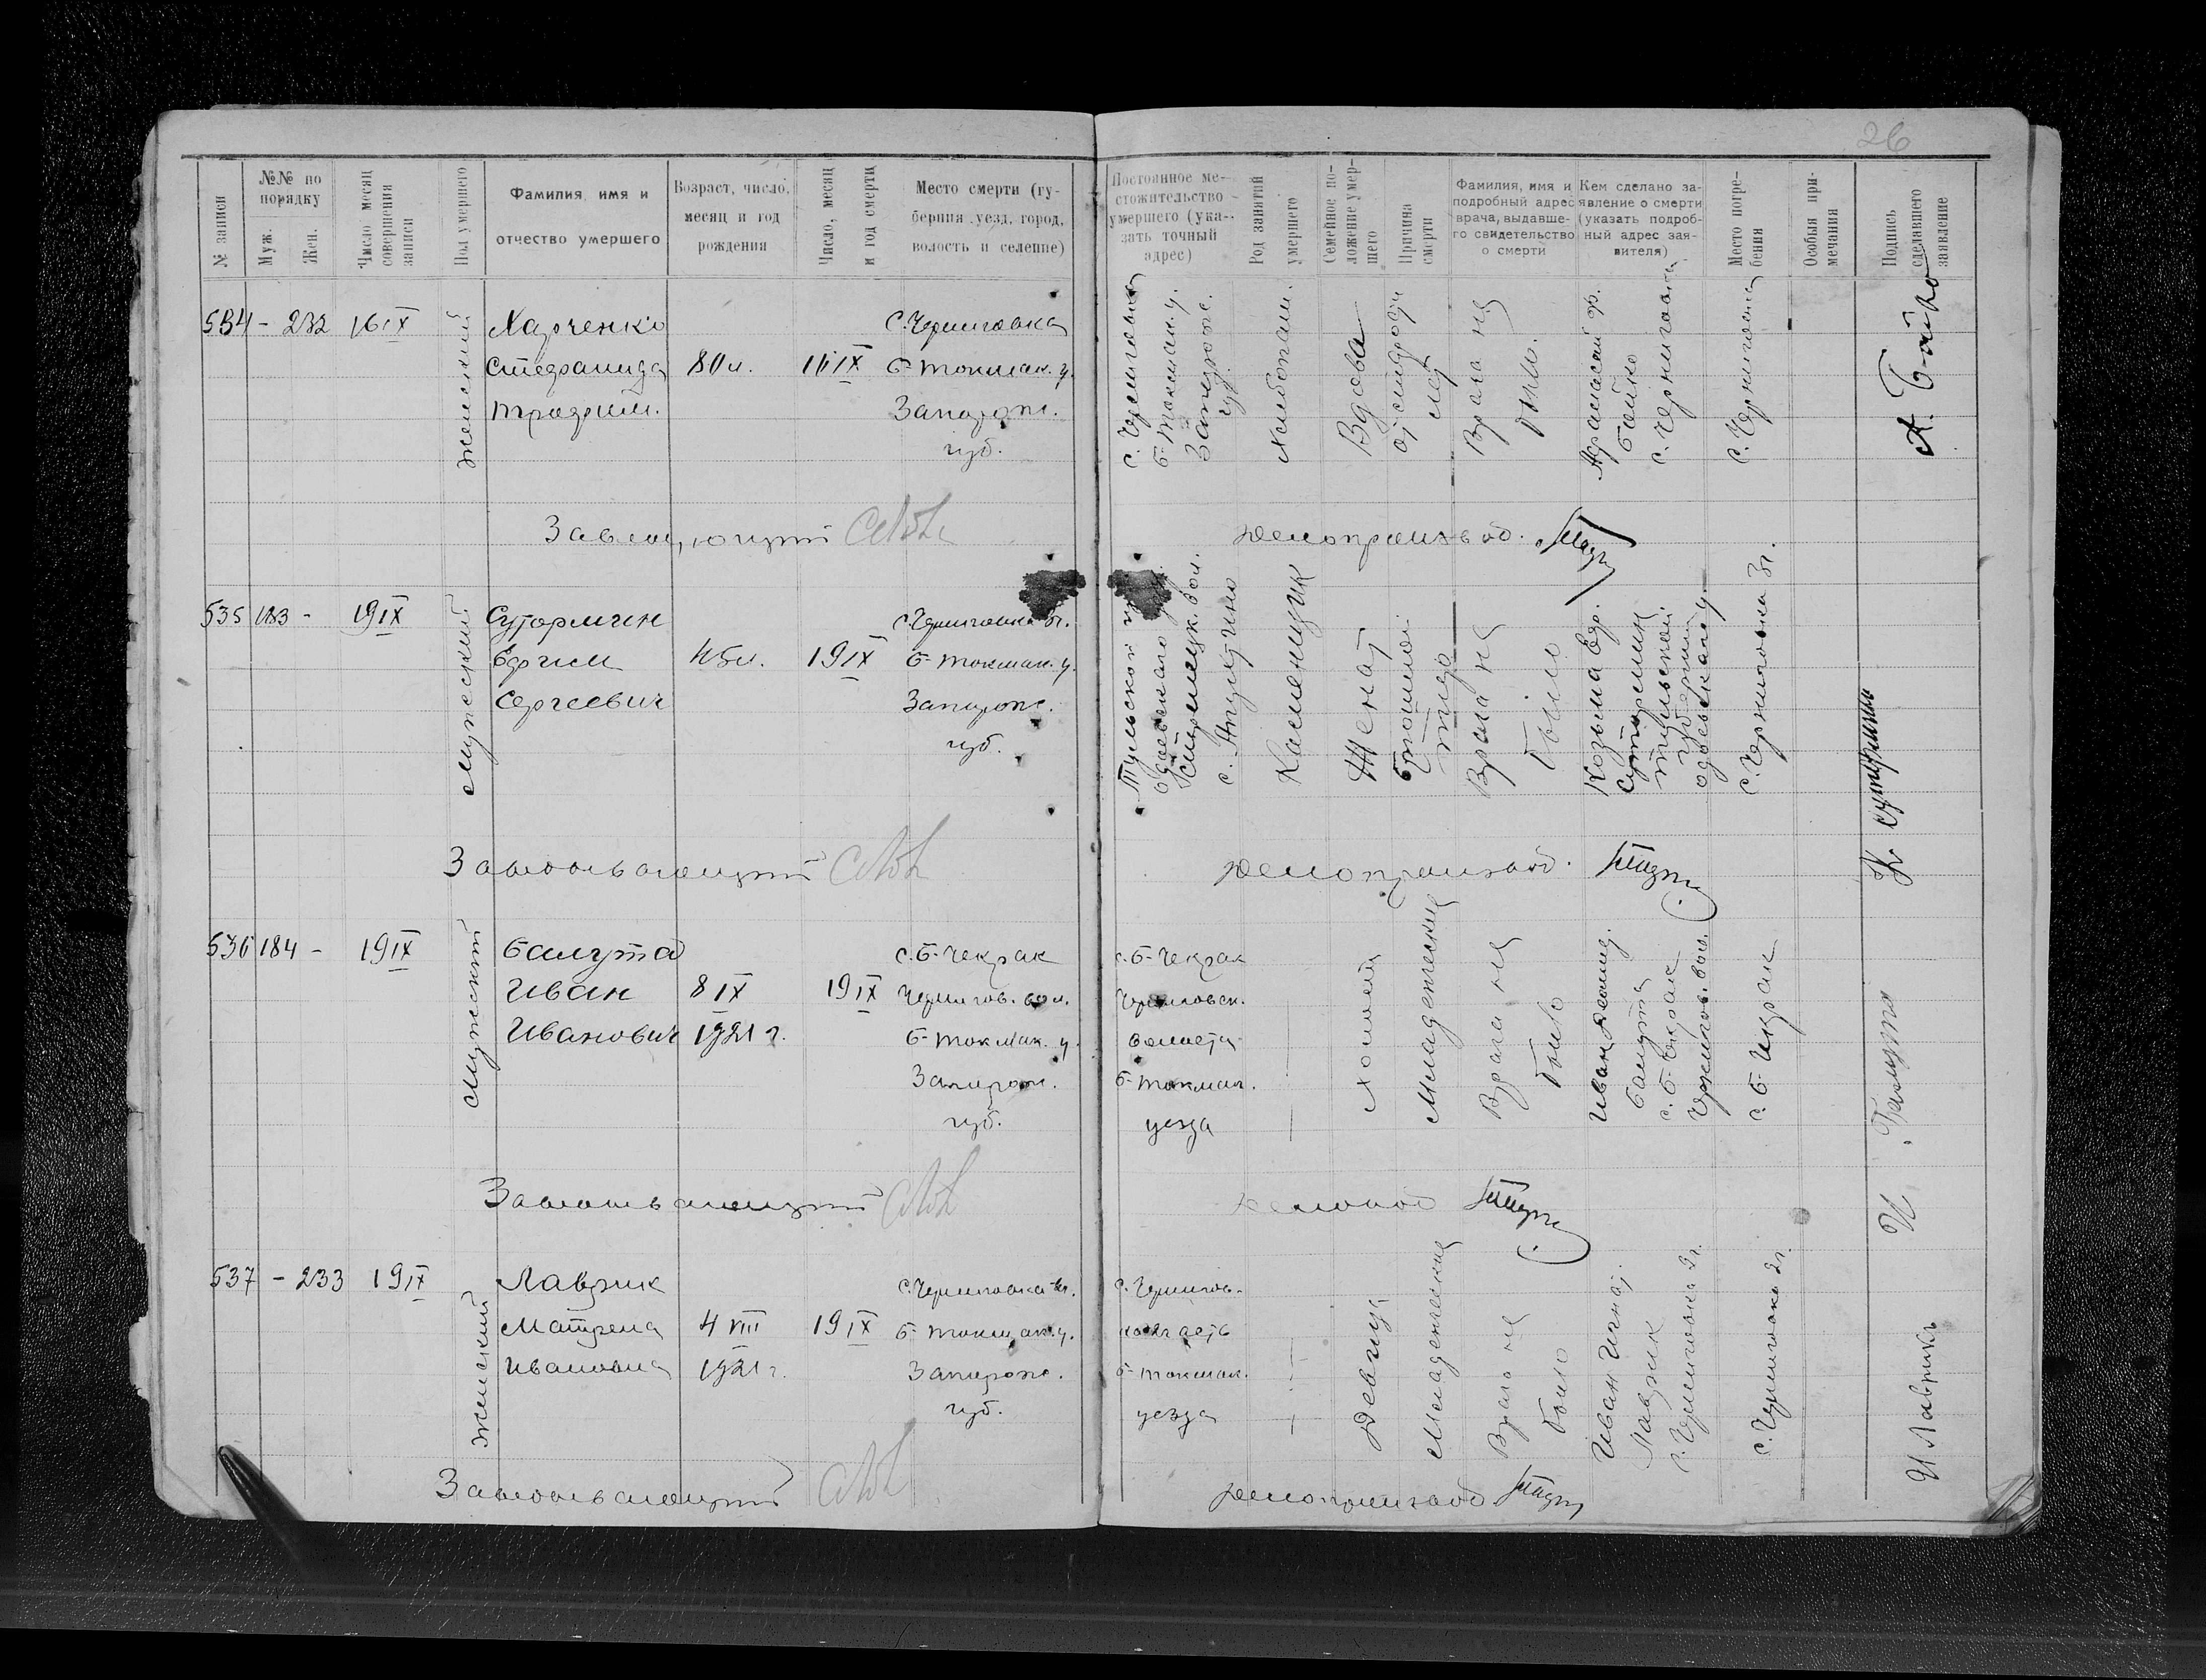 26
№ записи
№№ по порядку
Муж.
Жен.
Число месяц совершения записи
Пол умершего
Фамилия, имя и отчество умершего
Возраст, число, месяц и год рождения
Число, месяц и год смерти
Место смерти (губерния, уезд, город, волость и селение)
Постоянное местожительство умершего (указать точный адрес)
Род занятий умершего
Семейное положение умершего
Причина смерти
Фамилия, имя и подробный адрес врача, выдавшего свидетельство о смерти
Кем сделано заявление о смерти (указать подробный адрес заявителя)
Место погребения
Особыя примечания
Подпись сделавшего заявление
534 - 232 16 IX
женский
Харченко
Стефанида
80 л.
16 IX
с. Черниговка
Б-Токмак. у.
Запорож.
губ.
с. Черниговка
Б-Токмак. у.
Запорож.
губ.
Хлебопаш.
Вдова
Врача не
было
Бойко
с. Черниговка
с. Черниговка
А. Бойко
Заведующий
Делопроизвод.
535 183 - 19 IX
мужеский
Сутормин
Ефим
Сергеевич
45 л.
19 IX
с. Черниговка 3г.
Б-Токмак. у.
Запорож.
губ.
Тульской
с.
Каменщик
Женат
Брюшной
тиф
Врача не
было
Козьма Еф.
Сутормин
Тульской
губернии
с. Черниговка 3г.
К Сутормин
Делопроизвод.
536 184 - 19 IX
мужский
Балута
Иван
Иванович
8 IX
1921 г.
19 IX
с. Б-Чекрак
Чернигов. вол.
Б-Токмак. у.
Запорож.
губ.
с. Б-Чекрак
Черниговск.
волости
Б-Токмак.
уезда
Холостой
Младенческая
Врача не
было
Иван
Балута
с. Б-Чекрак
Чернигов. вол.
с. Б-Чекрак
И Балута
537 - 233 19 IX
женский
Лаврик
Матрена
Ивановна
4 VIII
1921 г.
19 IX
с. Черниговка
Б-Токмак. у.
Запорож.
губ.
с. Чернигов-
ка 2г часть
Б-Токмак.
уезда
Девица
Младенческая
Врача не
было
Иван Игнат.
Лаврик
с. Черниговка 2г.
с. Черниговка 2г.
И Лаврик
Делопроизвод